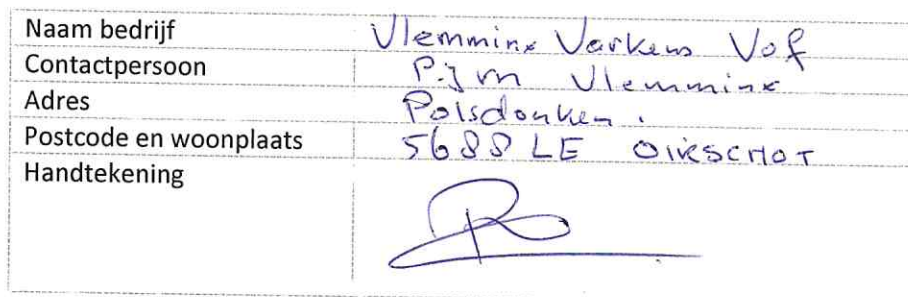 Naam bedrijf Vlemminx Varkens Vof
Contactpersoon P.J.M Vlemminx
Adres Polsdonken.
Postcode en woonplaats 5688 LE OIRSCHOT
Handtekening